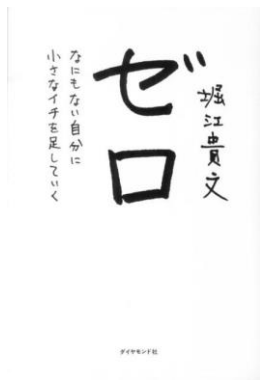 堀江貴文
ゼロ
なにもない自分に
小さなイチを足していく
ダイヤモンド社